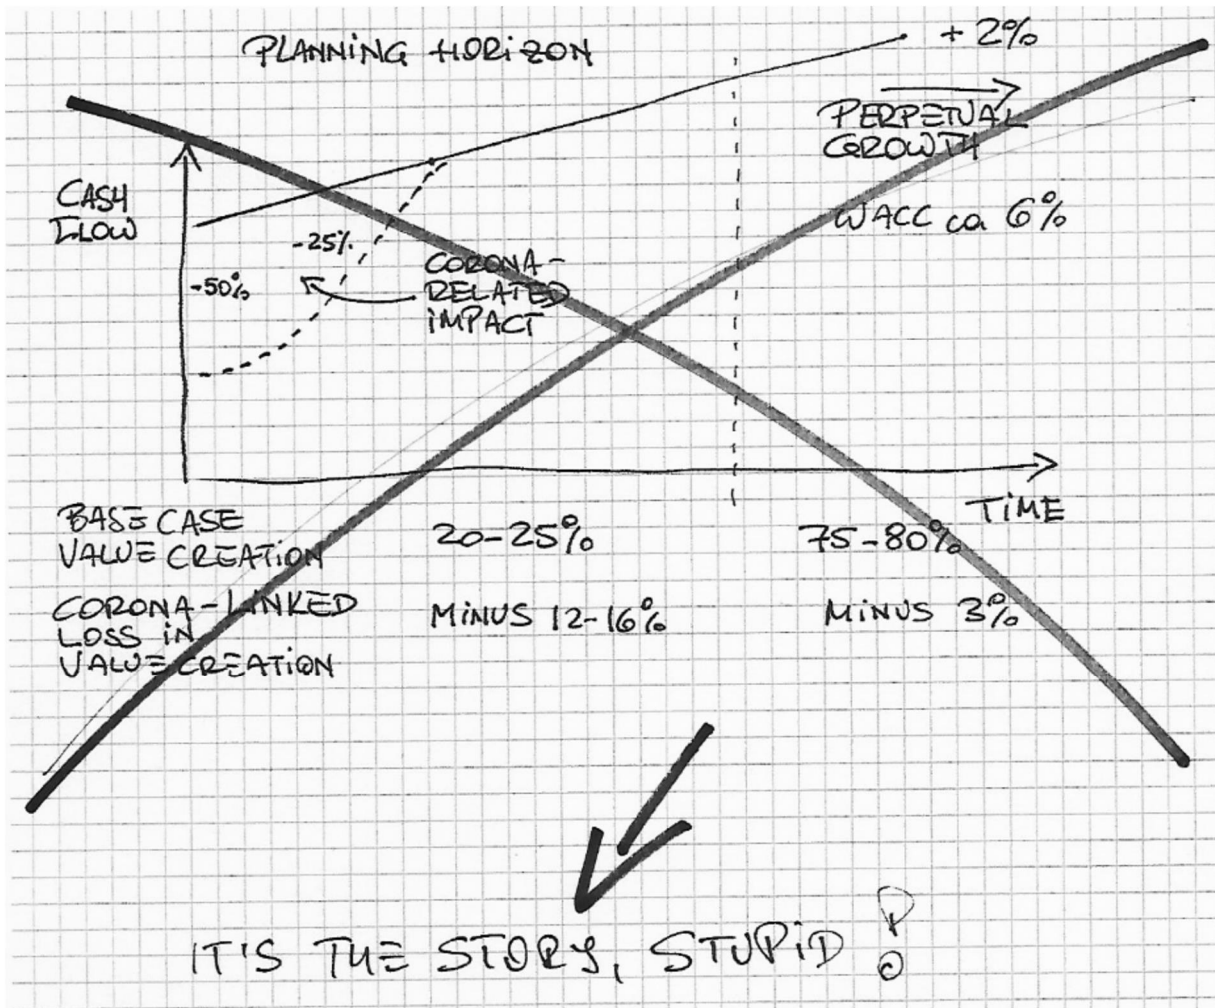 PLANNING HORIZON
+ 2%
PERPETUAL
GROWTH
CASH
FLOW
WACC ca 6%
-25%
-50%
CORONA-
RELATED
IMPACT
TIME
BASE CASE
VALUE CREATION
20-25%
75-80%
CORONA-LINKED
LOSS IN
VALUE CREATION
MINUS 12-16%
MINUS 3%
IT'S THE STORY, STUPID !